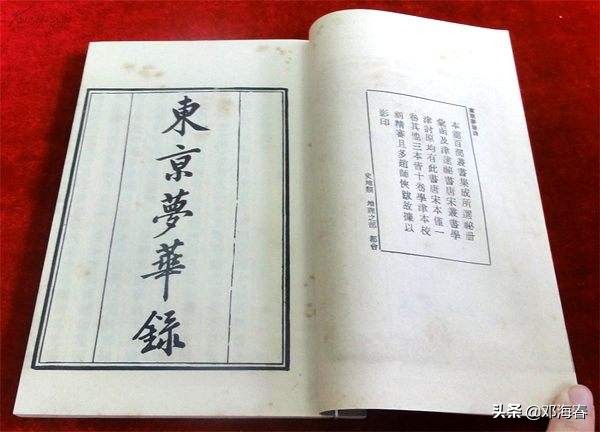 東京夢華錄
本館百部叢書集成所選祕册
彙函及津逮祕書唐宋叢書學
津討原均有此書唐宋本僅一
卷其他三本皆十卷學津本校
刻精審且多趙師俠跋故據以
影印
史地類 地理之部 都會
東京夢華錄
头条 @邓海春